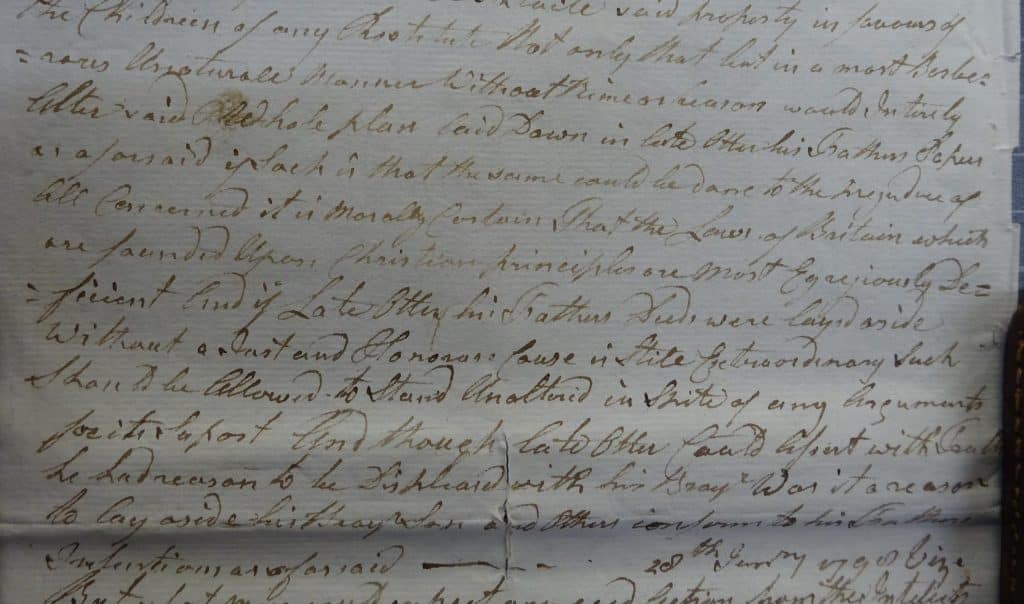 said property in favours of
the Children of any Prostitute Not only that but in a most Barbe=
=rous Unnaturale Manner Without Rime or reason would Intirely
Alter said whole plan Laid Down in late Otter his Fathers Papers
as aforsaid if Such is that the same could be done to the prejudice of
All Concerned it is Morally Certain That the Laws of Britain which
are founded Upon Christian principles are most Egregiously De=
=ficient And if Late Otter his Fathers Deeds were layd aside
Without a Just and Honorose Cause is Stile Extraordinary Such
Should be Allowed to Stand Unaltered in Spite of any Arguments
for its Suport And though late Otter Could Assert with
he had reason to be Displeasd with his Bray.r Was it a reason
to lay aside his Bray.r Son and Others conform to his Fathers
Intentions as aforsaid — 28th Janry 1798 Vize
But what man could expect any good action from the